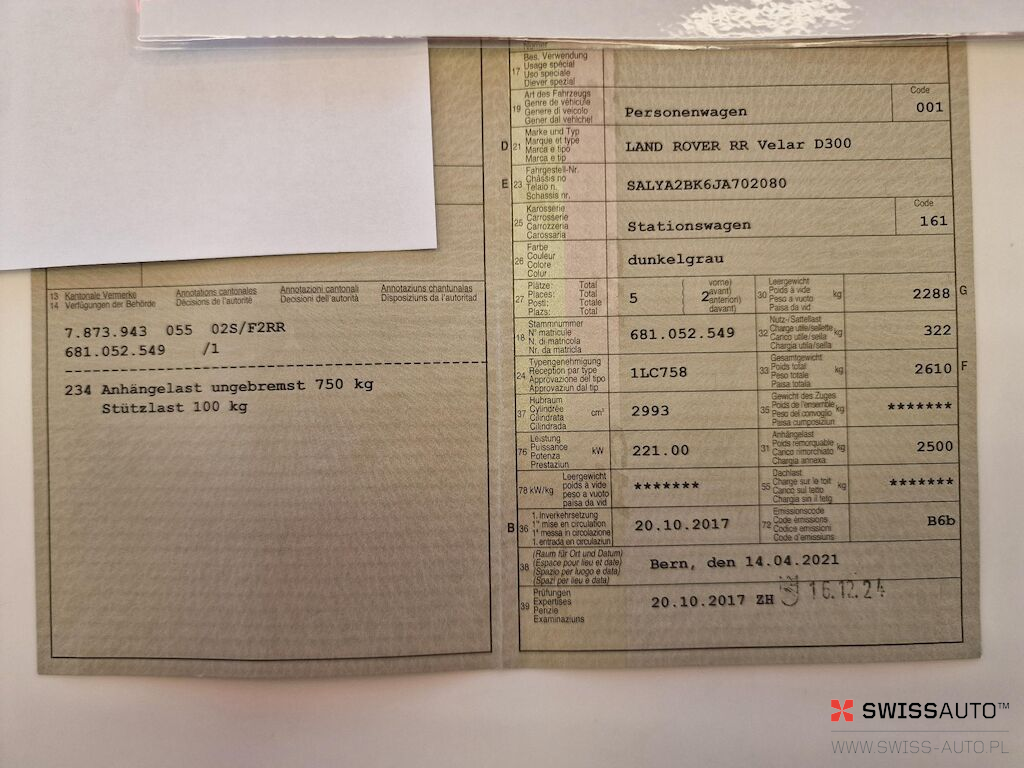 Numer
17 Bes. Verwendung
Usage spécial
Uso speciale
Diever spezial
19 Art des Fahrzeugs
Genre de véhicule
Genere di veicolo
Gener dal vehichel
Personenwagen
Code
001
D 21 Marke und Typ
Marque et type
Marca e tipo
Marca e tip
LAND ROVER RR Velar D300
E 23 Fahrgestell-Nr.
Châssis no
Telaio n.
Schassis nr.
SALYA2BK6JA702080
25 Karosserie
Carrosserie
Carrozzeria
Carossaria
Stationswagen
Code
161
26 Farbe
Couleur
Colore
Colur
dunkelgrau
27 Plätze: Total
Places: Total
Posti: Totale
Plazs: Total
5
2
vorne)
avant)
anteriori)
davant)
30 Leergewicht
Poids à vide
Peso a vuoto
Paisa da vid
kg
2288 G
18 Stammnummer
N° matricule
N. di matricola
Nr. da matricla
681.052.549
32 Nutz-/Sattellast
Charge utile/sellette
Carico utile/sella
Chargia utila/sella
kg
322
24 Typengenehmigung
Réception par type
Approvazione del tipo
Approvaziun dal tip
1LC758
33 Gesamtgewicht
Poids total
Peso totale
Paisa totala
kg
2610 F
37 Hubraum
Cylindrée
Cilindrata
Cilindrada
cm³
2993
35 Gewicht des Zuges
Poids de l'ensemble
Peso del convoglio
Paisa cumposiziun
kg
*******
76 Leistung
Puissance
Potenza
Prestaziun
kW
221.00
31 Anhängelast
Poids remorquable
Carico rimorchiato
Chargia annexa
kg
2500
78 kW/kg Leergewicht
poids à vide
peso a vuoto
paisa da vid
*******
55 Dachlast
Charge sur le toit
Carico sul tetto
Chargia sin il tetg
kg
*******
B 36 1. Inverkehrsetzung
1re mise en circulation
1a messa in circolazione
1. entrada en circulaziun
20.10.2017
72 Emissionscode
Code émissions
Codice emissioni
Code d'emissiuns
B6b
38 (Raum für Ort und Datum)
(Espace pour lieu et date)
(Spazio per luogo e data)
(Spazi per lieu e data)
Bern, den 14.04.2021
39 Prüfungen
Expertises
Perizie
Examinaziuns
20.10.2017 ZH 16.12.24
13 Kantonale Vermerke Annotations cantonales Annotazioni cantonali Annotaziuns chantunalas
14 Verfügungen der Behörde Décisions de l'autorité Decisioni dell'autorità Disposiziuns da l'autoritad
7.873.943 055 02S/F2RR
681.052.549 /1
234 Anhängelast ungebremst 750 kg
Stützlast 100 kg
SWISSAUTO™
WWW.SWISS-AUTO.PL